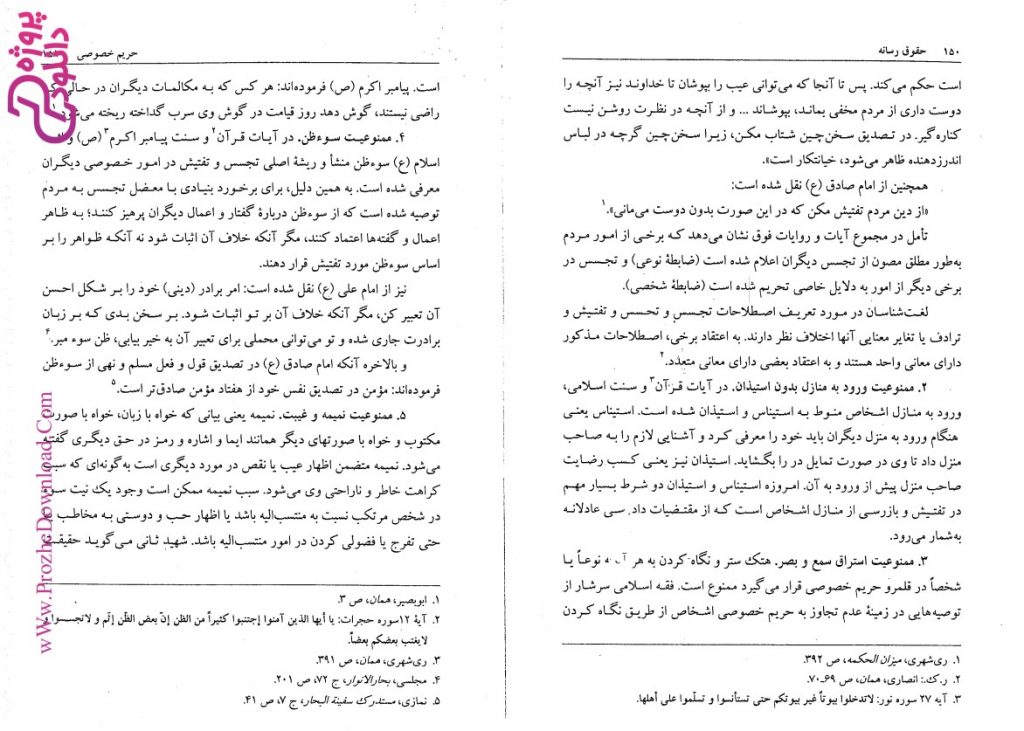 ۱۵۰ حقوق رسانه
است حکم می‌کند. پس تا آنجا که می‌توانی عیب را بپوشان تا خداوند نیز آنچه را
دوست داری از مردم مخفی بماند، بپوشاند ... و از آنچه در نظرت روشن نیست
کناره گیر. در تصدیق سخن‌چین شتاب مکن، زیرا سخن‌چین گرچه در لباس
اندرزدهنده ظاهر می‌شود، خیانتکار است».
همچنین از امام صادق (ع) نقل شده است:
«از دین مردم تفتیش مکن که در این صورت بدون دوست می‌مانی».۱
تأمل در مجموع آیات و روایات فوق نشان می‌دهد که برخی از امور مردم
به‌طور مطلق مصون از تجسس دیگران اعلام شده است (ضابطهٔ نوعی) و تجسس در
برخی دیگر از امور به دلایل خاصی تحریم شده است (ضابطهٔ شخصی).
لغت‌شناسان در مورد تعریف اصطلاحات تجسس و تحسس و تفتیش و
ترادف یا تغایر معنایی آنها اختلاف نظر دارند. به اعتقاد برخی، اصطلاحات مذکور
دارای معانی واحد هستند و به اعتقاد بعضی دارای معانی متعدد.۲
۲. ممنوعیت ورود به منازل بدون استیذان. در آیات قرآن۳ و سنت اسلامی،
ورود به منازل اشخاص منوط به استیناس و استیذان شده است. استیناس یعنی
هنگام ورود به منزل دیگران باید خود را معرفی کرد و آشنایی لازم را به صاحب
منزل داد تا وی در صورت تمایل در را بگشاید. استیذان نیز یعنی کسب رضایت
صاحب منزل پیش از ورود به آن. امروزه استیناس و استیذان دو شرط بسیار مهم
در تفتیش و بازرسی از منازل اشخاص است که از مقتضیات دادرسی عادلانه
به‌شمار می‌رود.
۳. ممنوعیت استراق سمع و بصر. هتک ستر و نگاه کردن به هر آنچه نوعاً یا
شخصاً در قلمرو حریم خصوصی قرار می‌گیرد ممنوع است. فقه اسلامی سرشار از
توصیه‌هایی در زمینهٔ عدم تجاوز به حریم خصوصی اشخاص از طریق نگاه کردن
۱. ری‌شهری، میزان الحکمه، ص ۳۹۲.
۲. ر.ک.: انصاری، همان، ص ۶۹ـ۷۰.
۳. آیه ۲۷ سوره نور: لاتدخلوا بیوتاً غیر بیوتکم حتی تستأنسوا و تسلّموا علی أهلها.
حریم خصوصی
است. پیامبر اکرم (ص) فرموده‌اند: هر کس که به مکالمات دیگران در حالی که
راضی نیستند، گوش دهد روز قیامت در گوش وی سرب گداخته ریخته می‌شود.
۴. ممنوعیت سوءظن. در آیات قرآن۲ و سنت پیامبر اکرم۳ (ص) و
اسلام (ع) سوءظن منشأ و ریشهٔ اصلی تجسس و تفتیش در امور خصوصی دیگران
معرفی شده است. به همین دلیل، برای برخورد بنیادی با معضل تجسس به مردم
توصیه شده است که از سوءظن دربارهٔ گفتار و اعمال دیگران پرهیز کنند؛ به ظاهر
اعمال و گفته‌ها اعتماد کنند، مگر آنکه خلاف آن اثبات شود نه آنکه ظواهر را بر
اساس سوءظن مورد تفتیش قرار دهند.
نیز از امام علی (ع) نقل شده است: امر برادر (دینی) خود را بر شکل احسن
آن تعبیر کن، مگر آنکه خلاف آن بر تو اثبات شود. بر سخن بدی که بر زبان
برادرت جاری شده و تو می‌توانی محملی برای تعبیر آن به خیر بیابی، ظن سوء مبر.۴
و بالاخره آنکه امام صادق (ع) در تصدیق قول و فعل مسلم و نهی از سوءظن
فرموده‌اند: مؤمن در تصدیق نفس خود از هفتاد مؤمن صادق‌تر است.۵
۵. ممنوعیت نمیمه و غیبت. نمیمه یعنی بیانی که خواه با زبان، خواه با صورت
مکتوب و خواه با صورتهای دیگر همانند ایما و اشاره و رمز در حق دیگری گفته
می‌شود. نمیمه متضمن اظهار عیب یا نقص در مورد دیگری است به‌گونه‌ای که سبب
کراهت خاطر و ناراحتی وی می‌شود. سبب نمیمه ممکن است وجود یک نیت سوء
در شخص مرتکب نسبت به منتسب‌الیه باشد یا اظهار حب و دوستی به مخاطب و
حتی تفرج یا فضولی کردن در امور منتسب‌الیه باشد. شهید ثانی می‌گوید حقیقت
۱. ابوبصیر، همان، ص ۳.
۲. آیهٔ ۱۲سوره حجرات: یا أیها الذین آمنوا إجتنبوا کثیراً من الظن إنّ بعض الظّن إثم و لاتجسسوا و
لایغتب بعضکم بعضاً.
۳. ری‌شهری، همان، ص ۳۹۱.
۴. مجلسی، بحارالانوار، ج ۷۲، ص ۲۰۱.
۵. نمازی، مستدرک سفینة البحار، ج ۷، ص ۴۱.
پروژه دانلود
www.ProzheDownload.Com